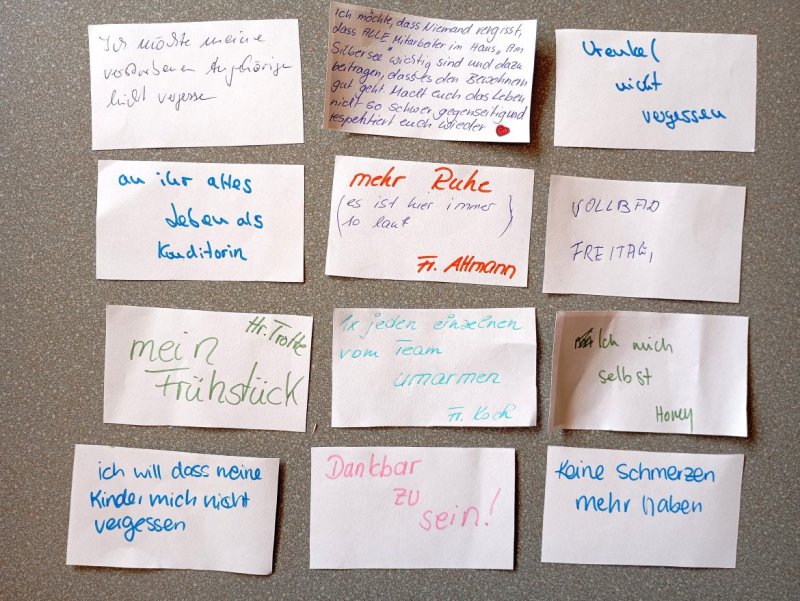 Ich möchte meine
verstorbenen Angehörige
nicht vergessen
Ich möchte, dass Niemand vergisst,
dass ALLE Mitarbeiter im Haus "Am
Silbersee" wichtig sind und dazu
beitragen, dass es den Bewohnern
gut geht. Macht euch das Leben
nicht so schwer, gegenseitig und
respektiert euch wieder
Urenkel
nicht
vergessen
an ihr altes
Leben als
Konditorin
mehr Ruhe
(es ist hier immer
so laut)
Fr. Altmann
VOLLBAD
FREITAG,
Hr. Trotte
mein
Frühstück
1x jeden einzelnen
vom Team
umarmen
Fr. Koch
Ich mich
selbst
Honey
ich will dass meine
Kinder mich nicht
vergessen
Dankbar
zu
sein!
Keine Schmerzen
mehr haben